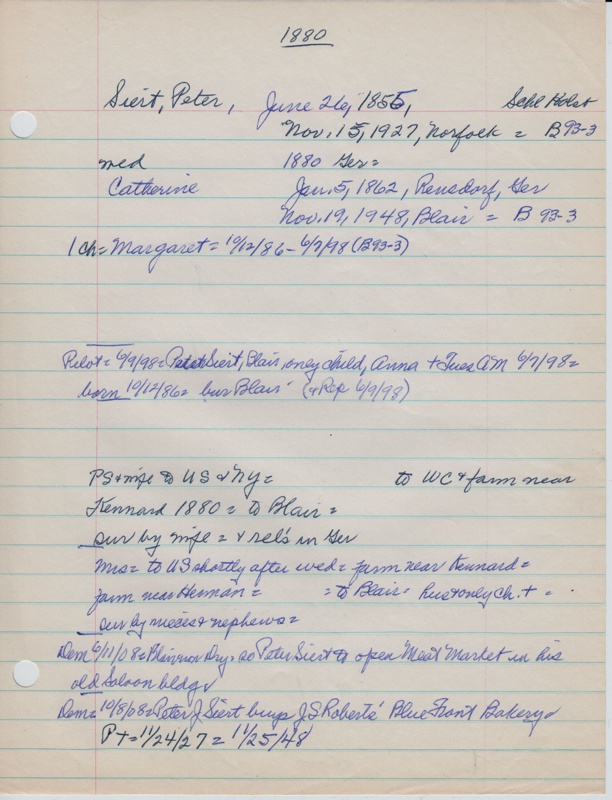 1880
Siert, Peter, June 26, 1855, Schl Holst
Nov. 15, 1927, Norfolk = B 93-3
wed 1880 Ger =
Catherine Jan. 5, 1862, Rensdorf, Ger
Nov. 19, 1948, Blair = B 93-3
1 ch = Margaret = 10/12/86 - 6/7/98 (B93-3)
Pilot = 6/9/98 = Peter Siert, Blair, only child, Anna + Tues AM 6/7/98 =
born 10/12/86 = bur Blair (+ Rep 6/9/98)
PS & wife to US & NY = to WC & farm near
Kennard 1880 = to Blair =
sur by wife = & rel's in Ger
Mrs = to US shortly after wed = farm near Kennard =
farm near Herman = = to Blair = hus & only ch. + =
sur by nieces & nephews =
Dem 6/11/08 = Blair Dry = so Peter Siert to open Meat Market in his
old saloon bldg
Dem = 10/8/08 = Peter J Siert buys J S Roberts' Blue Front Bakery
P + = 11/24/27 = 11/25/48